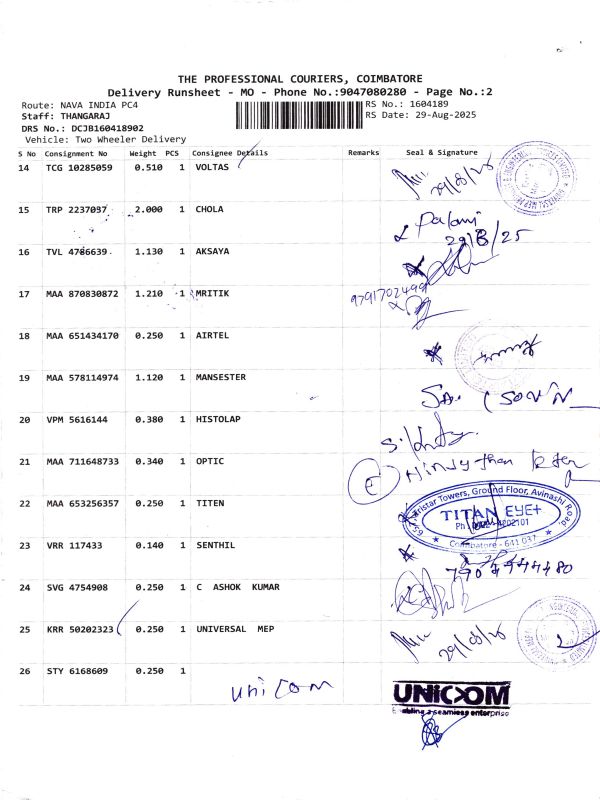 THE PROFESSIONAL COURIERS, COIMBATORE
Delivery Runsheet - MO - Phone No.:9047080280 - Page No.:2
Route: NAVA INDIA PC4
RS No.: 1604189
Staff: THANGARAJ
RS Date: 29-Aug-2025
DRS No.: DCJB160418902
Vehicle: Two Wheeler Delivery
S No Consignment No Weight PCS Consignee Details Remarks Seal & Signature
14 TCG 10285059 0.510 1 VOLTAS
15 TRP 2237037 2.000 1 CHOLA
Palani
29/8/25
16 TVL 4786639 1.130 1 AKSAYA
17 MAA 870830872 1.210 1 MRITIK
9791702499
18 MAA 651434170 0.250 1 AIRTEL
19 MAA 578114974 1.120 1 MANSESTER
20 VPM 5616144 0.380 1 HISTOLAP
21 MAA 711648733 0.340 1 OPTIC
22 MAA 653256357 0.250 1 TITEN
Tristar Towers, Ground Floor, Avinashi Road,
TITAN EYE+
Coimbatore - 641 037
23 VRR 117433 0.140 1 SENTHIL
24 SVG 4754908 0.250 1 C ASHOK KUMAR
25 KRR 50202323 0.250 1 UNIVERSAL MEP
26 STY 6168609 0.250 1
Unicom
UNICOM
Enabling a seamless enterprise